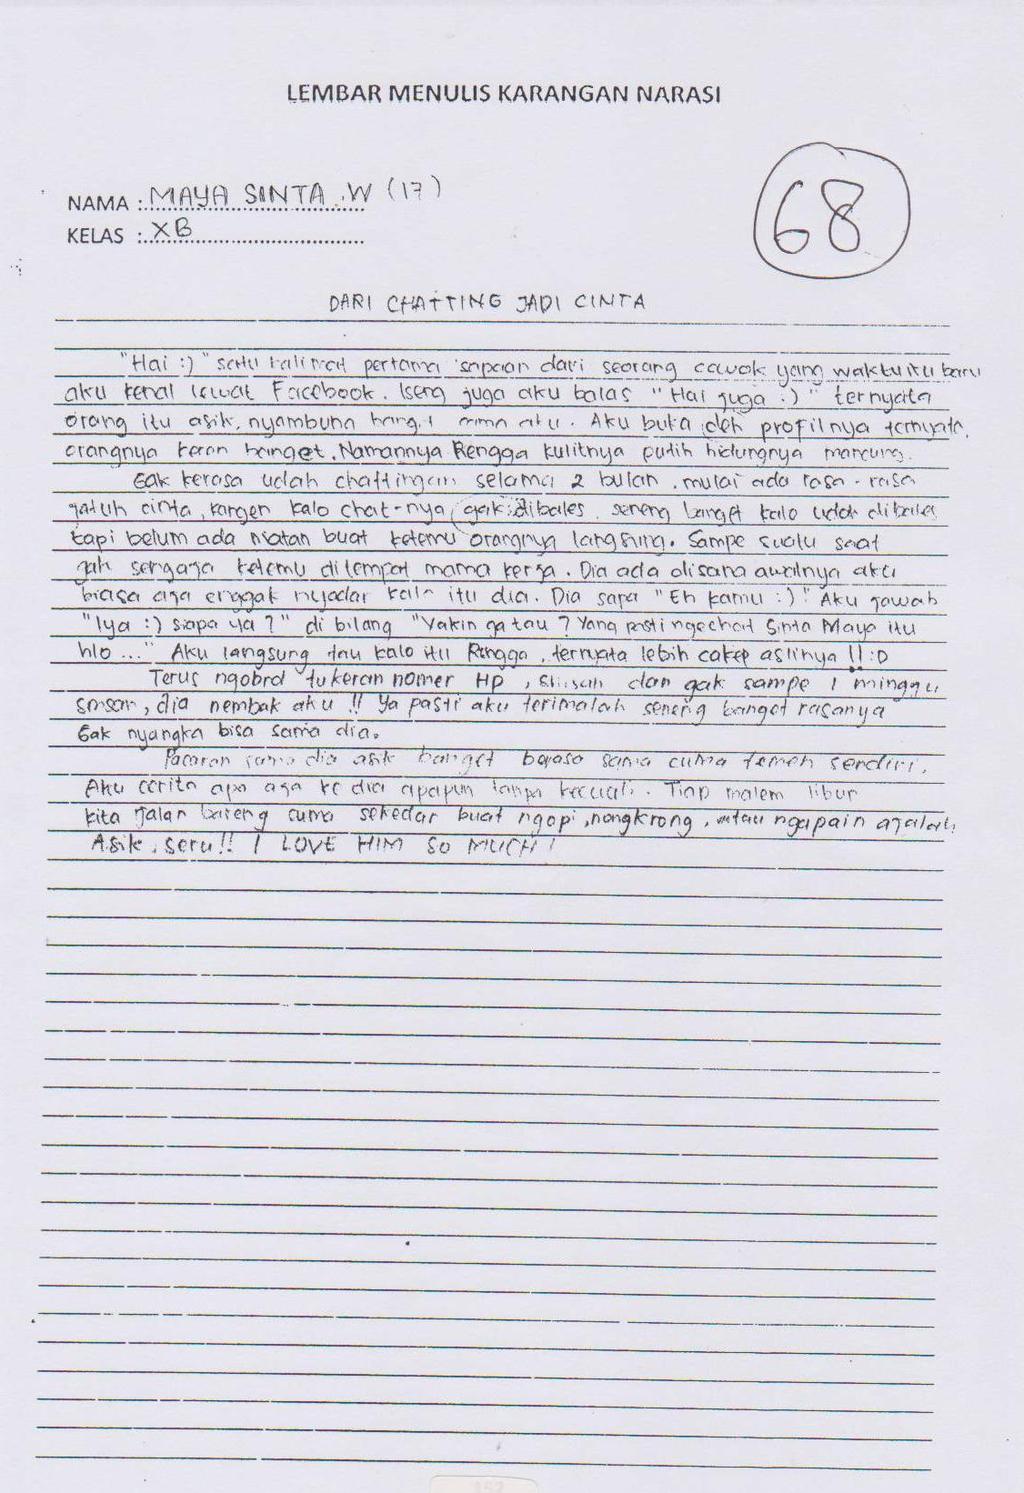 LEMBAR MENULIS KARANGAN NARASI
NAMA : MAYA SINTA .W (17)
KELAS : XB
68
DARI CHATTING JADI CINTA
"Hai :)" satu kalimat pertama sapaan dari seorang cowok yang waktu itu baru
aku kenal lewat Facebook. Iseng juga aku balas "Hai juga :)" ternyata
orang itu asik, nyambung banget sama aku. Aku buka deh profilnya ternyata
orangnya keren banget. Namannya Rengga kulitnya putih hidungnya mancung.
Gak kerasa udah chattingan selama 2 bulan, mulai ada rasa-rasa
jatuh cinta, kangen kalo chat-nya gak dibales, seneng banget kalo udah dibales
tapi belum ada niatan buat ketemu orangnya langsung. Sampe suatu saat
gak sengaja ketemu di tempat mama kerja. Dia ada disana awalnya aku
biasa aja enggak nyadar kalo itu dia. Dia sapa "Eh kamu :)" Aku jawab
"Iya :) siapa ya ?" di bilang "Yakin ga tau ? Yang pasti ngechat Sinta Maya itu
hlo ..." Aku langsung tau kalo itu Rengga, ternyata lebih cakep aslinya !! :D
Terus ngobrol tukeran nomer HP, dan gak sampe 1 minggu
smsan, dia nembak aku !! Ya pasti aku terimalah seneng banget rasanya
Gak nyangka bisa sama dia.
Pacaran sama dia asik banget berasa sama cuma temen sendiri.
Aku cerita apa aja ke dia apapun tanpa kecuali. Tiap malem libur
kita jalan bareng cuma sekedar buat ngopi, nongkrong, atau ngapain ajalah
Asik, seru!! I LOVE HIM SO MUCH !
157